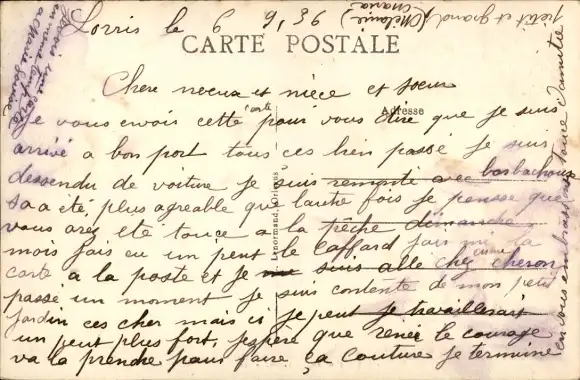 Lorris le 9 6 36
petit et grand, (Mélanie) Maria
CARTE POSTALE
Chere neveux et niéce et soeur
Adresse
Je vous envois cette carte pour vous dire que je suis
arrivé a bon port tous ces bien passé je suis
dessendu de voiture je suis remonté avec barbachoux
sa a été, plus agreable que l'autre fois je pensse que
vous avez eté touce a la pêche démanche
mois jais eu un peut le Caffard jais mi la
carte a la poste et je suis allé chez cheron
passé un moment je suis contente de mon petit
jardin ces cher mais si je peut je travaillerait
un peut plus fort, jespère que renée le courage
va la prendre pour faire ça couture je termine
en vous embrassant touce d'amitié
Lenormand, Orléans